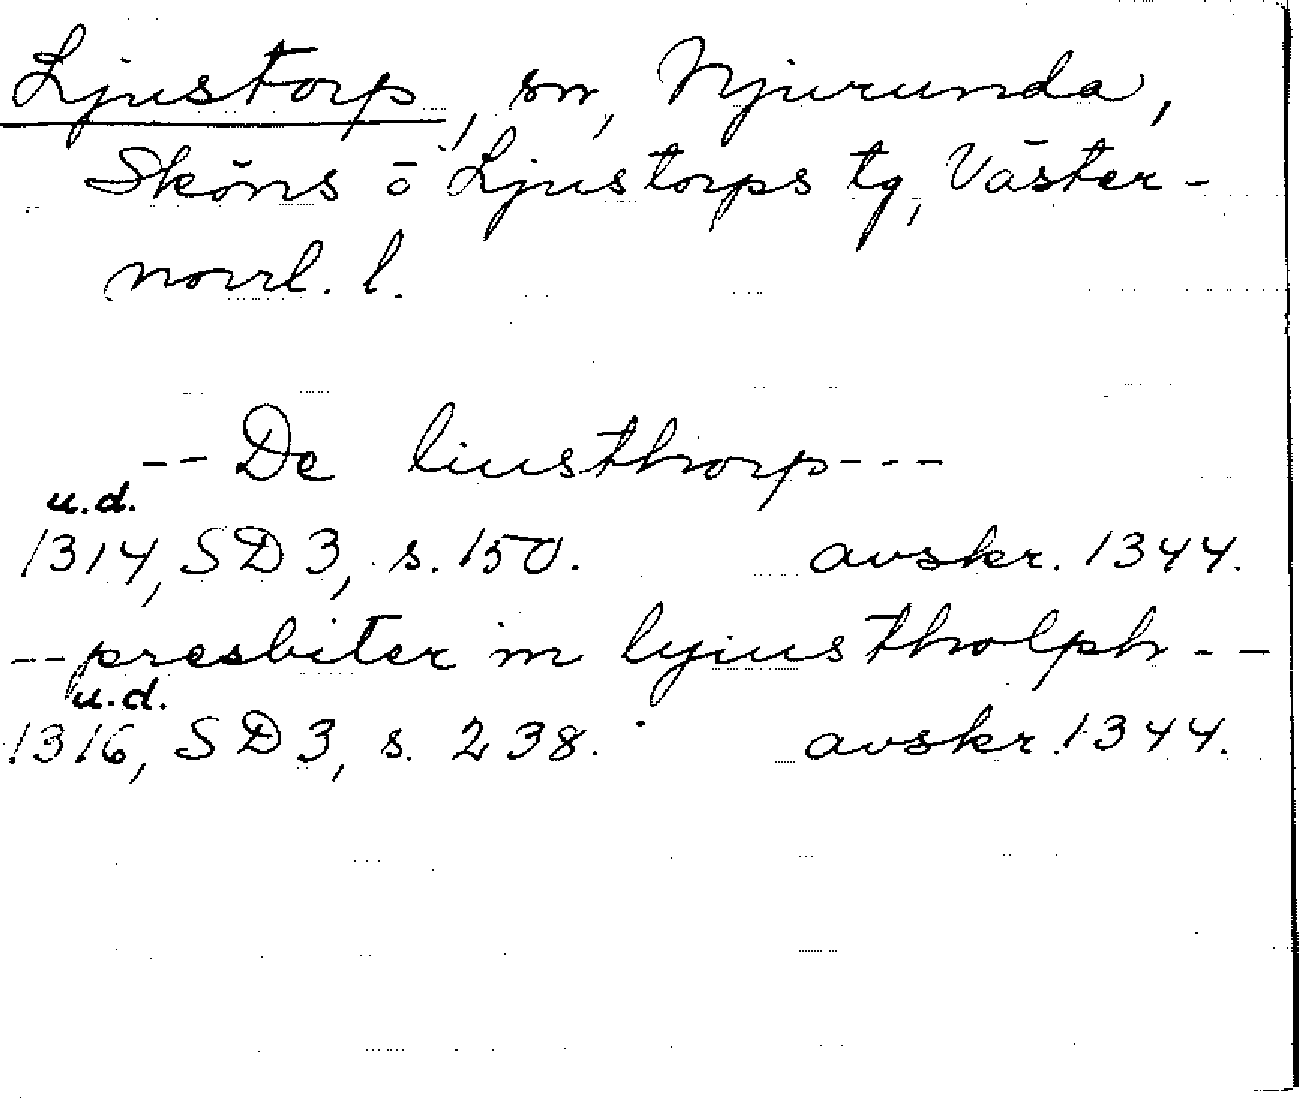 Ljustorp, sn, Njurunda,
Sköns o Ljustorps tg, Väster-
norrl. l.
-- De liusthorp ---
u.d.
1314, SD 3, s. 150. avskr. 1344.
-- presbiter in lyiustholph --
u.d.
1316, SD 3, s. 238. avskr. 1344.